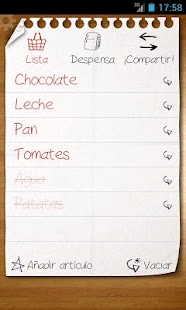 3G 17:58
Lista Despensa ¡Compartir!
Chocolate
Leche
Pan
Tomates
Agua
Patatas
Añadir artículo Vaciar